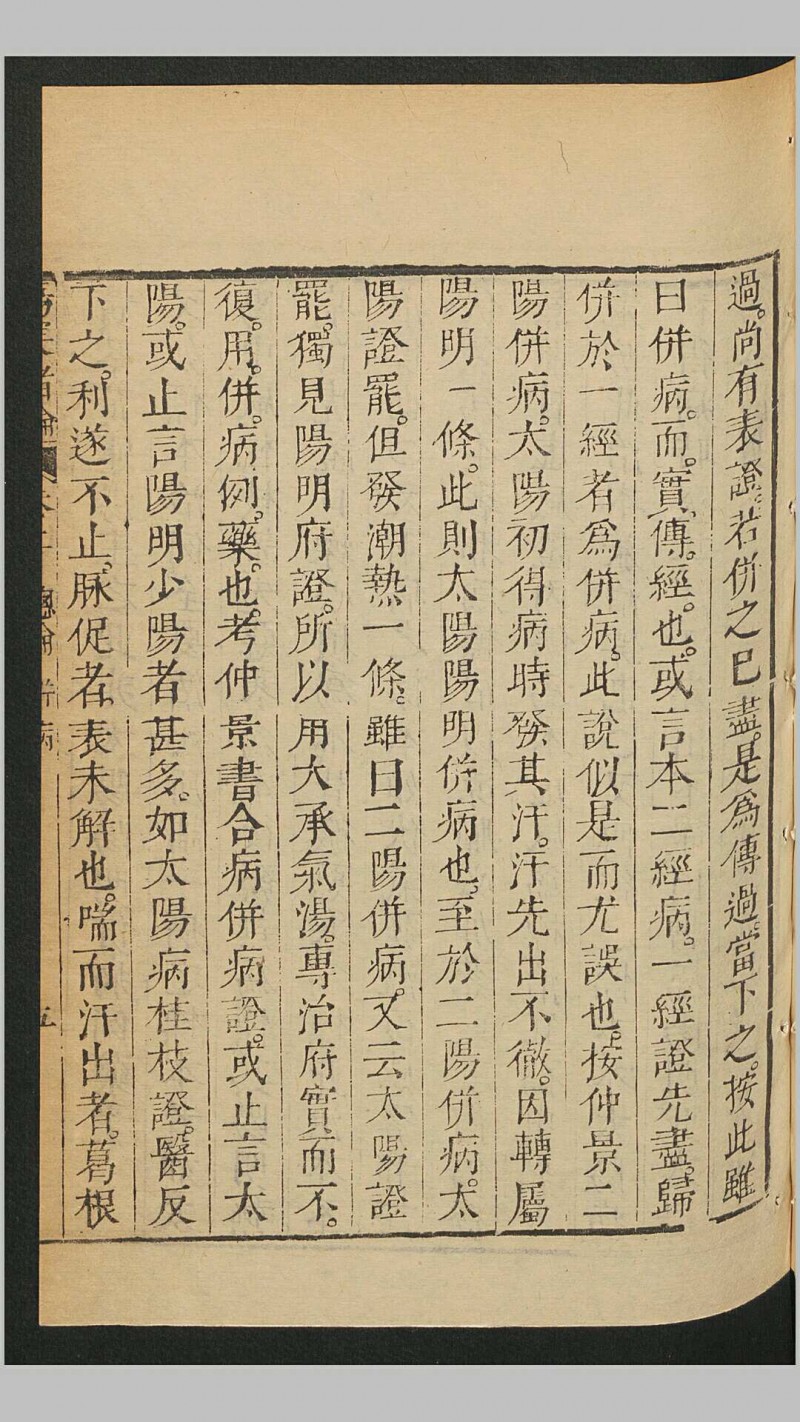 過。尚有表證。若併之已盡。是爲傳過。當下之。按此雖
曰併病。而。實。傳。經。也。或言本二經病。一經證先盡。歸
併於一經者爲併病。此說似是而尤誤也。按仲景二
陽併病。太陽初得病時發其汗。汗先出不徹。因轉屬
陽明一條。此則太陽陽明併病也。至於二陽併病。太
陽證罷。但發潮熱一條。雖曰二陽併病。又云太陽證
罷。獨見陽明府證。所以用大承氣湯。專治府實而不。
復。用。併。病。例。藥。也。考仲景書合病併病證。或止言太
陽。或止言陽明少陽者甚多。如太陽病桂枝證。醫反
下之。利遂不止。脉促者。表未解也。喘而汗出者。葛根
總論 併病 五